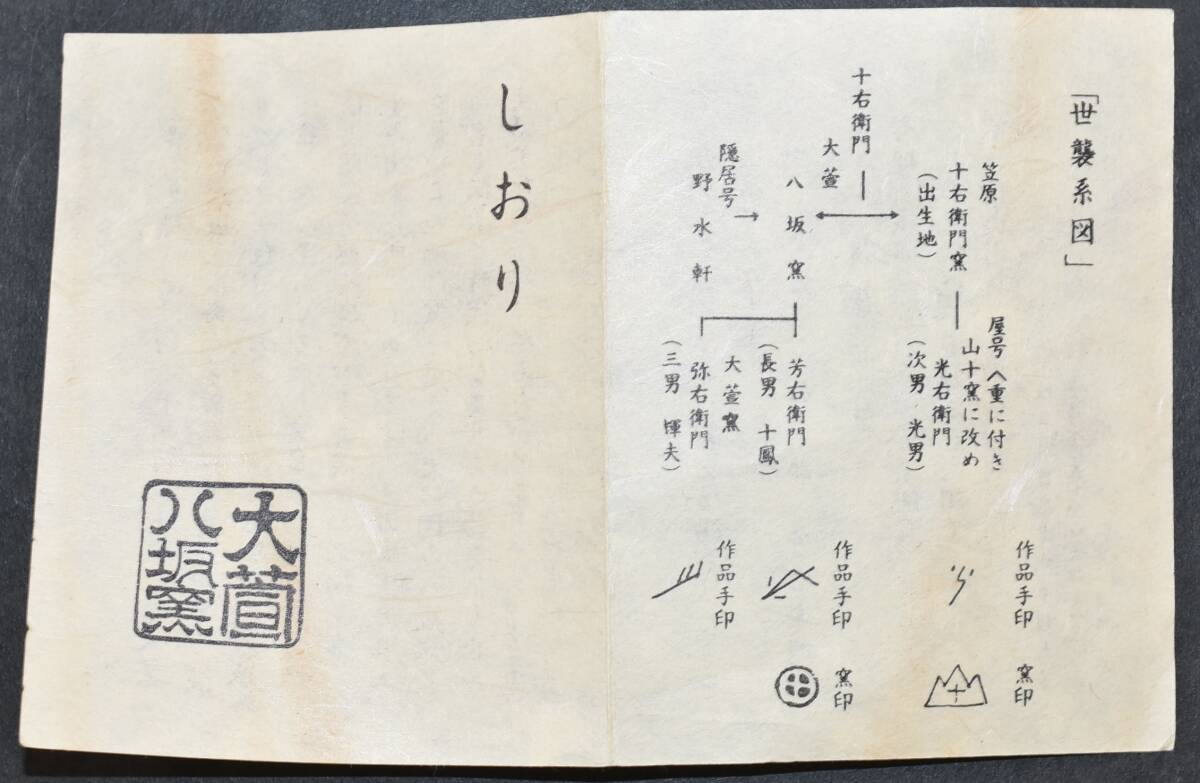 「世襲系図」
笠原
十右衛門窯
(出生地)
屋号へ重に付き
山十窯に改め
光右衛門
(次男 光男)
作品手印
窯印
十右衛門
大萱
八坂窯
芳右衛門
(長男 十鳳)
作品手印
窯印
隠居号
野水軒
大萱窯
弥右衛門
(三男 暉夫)
作品手印
しおり
大萱
八坂窯